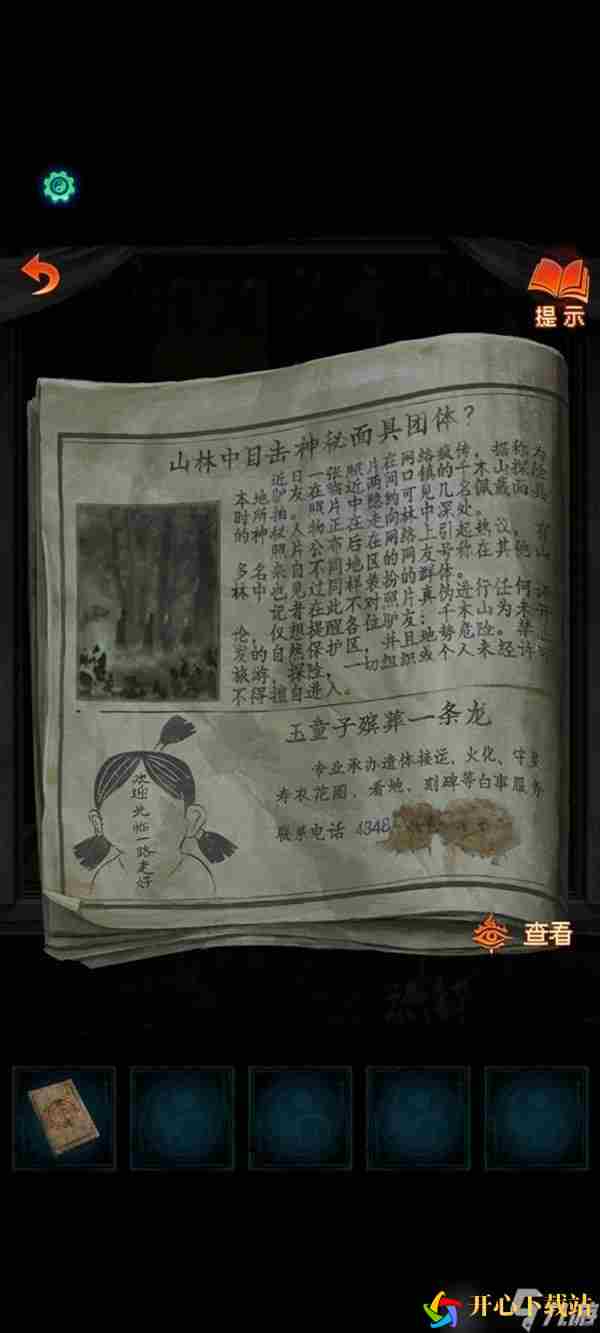 提示
山林中目击神秘面具团体？
近日一张照片在网络疯传，据称为
本地驴友在临近口镇的千木山探险
时所拍。照片中隐约可见几名佩戴面具
的神秘人物正走向林中深处。
照片公布后在网络上引起热议，有
多名来自不同地区的网友号称在其他山
林中也见过同样装扮的群体。
记者在此不对照片真伪进行任何评
论，仅想提醒各位驴友：千木山为未开
发的自然保护区，并且地势危险。禁
旅游，探险，一切组织或个人未经许
不得擅自进入。
玉童子殡葬一条龙
专业承办遗体接运，火化、守灵
寿衣花圈、看地、刻碑等白事服务
联系电话 4348
欢迎光临一路走好
查看
开心下载站
九游